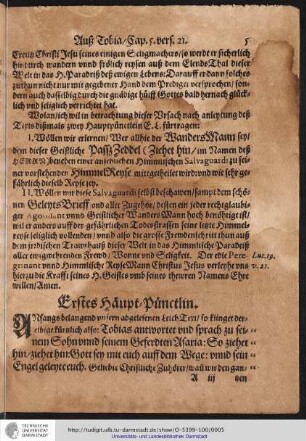 Auß Tobia/Cap. 5. vers. 21. 5
Creutz Christi Jesu seines einigen Seligmachers/so werde er sicherlich
hindurch wandern vnnd frölich reysen auß dem Elends Thal dieser
Welt in das H. Paradeiß deß ewigen Lebens: Darauff er dann solches
zuthun nicht nur mit gegebener Hand dem Prediger versprochen/ son-
dern auch dasselbig durch die gnädige hülff Gottes bald hernach glück-
lich vnd seliglich verrichtet hat.
Wolan/ich wil in betrachtung dieser wenig nach anleytung deß
Texts dißmals zwey Hauptpünctlein E. L. fürtragen:
I. Wöllen wir erlernen/ Wer allhie der WandersMann sey/
dem dieser Geistliche Paß Zeddel (Ziehet hin/ im Namen deß
HERRN) beneben einer
vorstehenden HimmelReyse mitgetheilet wird vnd wie sehr ge-
fährlich dieselb Reyse sey.
II. Wöllen wir diese Salvaguardi selbst beschawen/ sampt dem schö-
nen Geleyts Brieff vnd aller Zugehör/ dessen ein jeder rechtglaubi-
ger vnnd Geistlicher Wanders Mann hoch benöhtiget ist/
wil er anders auff der gefährlichen Todts strassen seine letzte Himmels
reyse seliglich vollenden/ vnnd also die grosse Heimfuhrt thun auß
dem jrrdischen Tranxhauß dieser Welt in das Himmlische Paradeiß
aller ewigwehrenden Frewd/ Wonne vnd Seligkeit. Der edle Pere- Luc. 19.
grinant vnnd Himmlische ReyseMann Christus Jesus verleyhe vns v. 21.
hierzu die Krafft seines H. Geistes vmb seines thewren Namens Ehre
willen/Amen.
Erstes Häupt-Pünctlin.
ANfangs belangend vnsern abgelesenen Leich Text/ so klinget der-
selbige kürtzlich also: Tobias antwortet vnd sprach zu sei-
nem Sohn vnnd seinem Geferdten Asaria: So ziehet
hin/ziehet hin Gott sey mit euch auff dem Wege: vnnd sein
Engel geleyte euch. Geliebte Christliche Zuhörer/
A iij
http://tudigit.ulb.tu-darmstadt.de/show/G-5399-100/0005
Universitäts- und Landesbibliothek Darmstadt
TECHNISCHE
UNIVERSITÄT
DARMSTADT